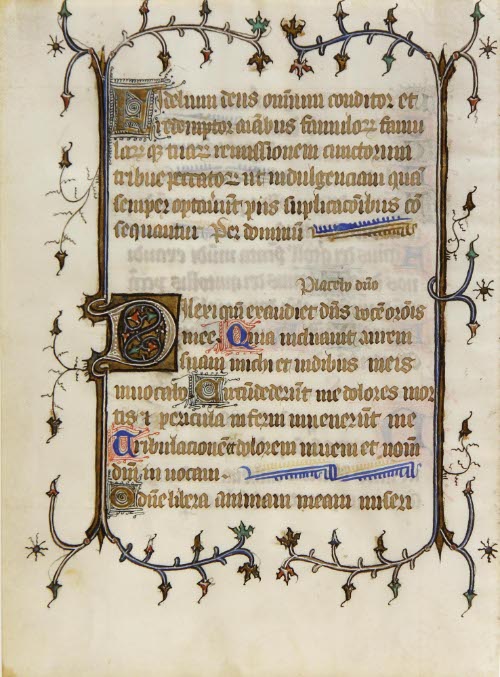 Fidelium deus omnium conditor et
redemptor aiabus famuloꝝ famu
laꝝ qꝫ tuaꝝ remissionem cunctorum
tribue peccatoꝝ ut indulgenciam quā
semper optauerūt piis suplicacōibus cō
sequantur Per dominū
Placebo dn̄o
Dilexi qm̄ exaudiet dn̄s vocē orōis
mee. Quia inclinauit aurem
suam michi et in dibus meis
inuocabo Circūdederūt me dolores mor
tis ⁊ pericula inferni inuenerūt me
Tribulacionē et dolorem inueni et nom̄
dn̄i inuocaui.
O dn̄e libera animam meam miseri